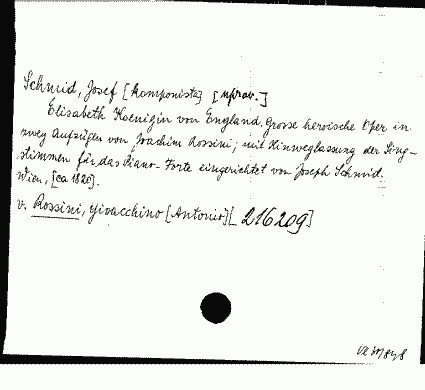 Schmid, Josef [komponista] [uprav.]
Elisabeth Koenigin von England. Grosse heroische Oper in
zwey Aufzügen von Joachim Rossini; mit Hinweglassung der Sing-
stimmen für das Piano-Forte eingerichtet von Joseph Schmid.
Wien, [ca 1820].
v. Rossini, Giovacchino [Antonio] [216209]